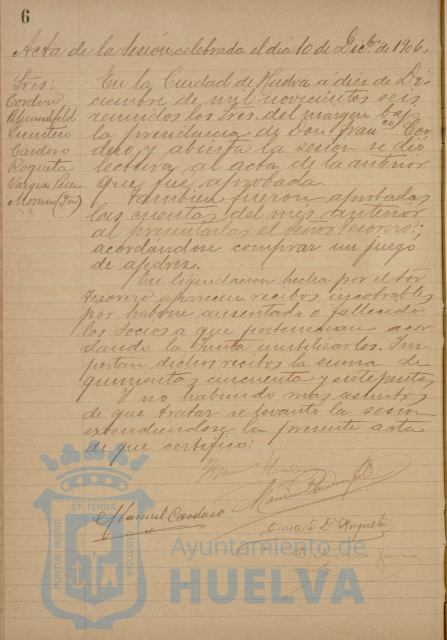 6
Acta de la Sesión celebrada el día 10 de Dicbre. de 1906.
Sres:
Cordero
Blumenfeld
Quintero
Cardoso
Roqueta
Vargas
Moreno
En la Ciudad de Huelva a diez de Di-
ciembre de mil novecientos seis
reunidos los Sres. del margen bajo
la presidencia de Don Franco. Cor-
dero y abierta la sesion se dio
lectura al acta de la anterior
que fue aprobada
Tambien fueron aprobadas
las cuentas del mes anterior
al presentarlas el Señor Tesorero;
acordandose comprar un juego
de ajedrez.
En liquidacion hecha por el Sor
Tesorero aparecen recibos incobrables
por haberse ausentado o fallecido
los Socios a que pertenecian acor
dando la Junta inutilizarlos. Im-
portan dichos recibos la suma de
quinientas cincuenta y siete ptas
Y no habiendo mas asuntos
de que tratar se levantó la sesion
extendiendose la presente acta
de que certifico:
Manuel Cardoso
Roqueta
ET TERRÆ
PORTUS MARIS
CUSTODIA
Ayuntamiento de
HUELVA